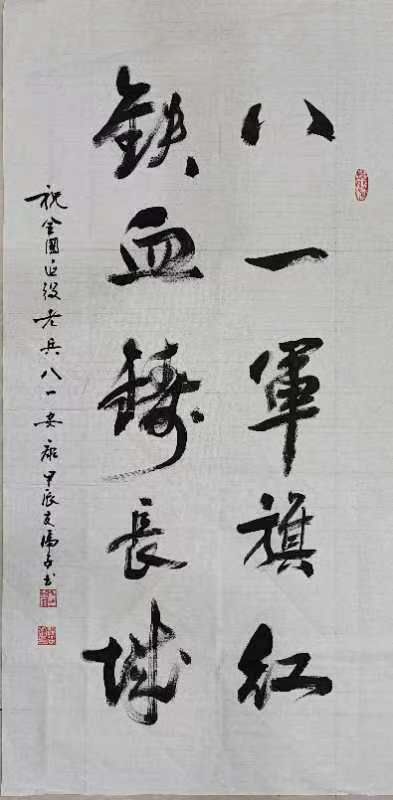 八一軍旗紅
鉄血鑄長城
祝全國退役老兵八一安康甲辰夏